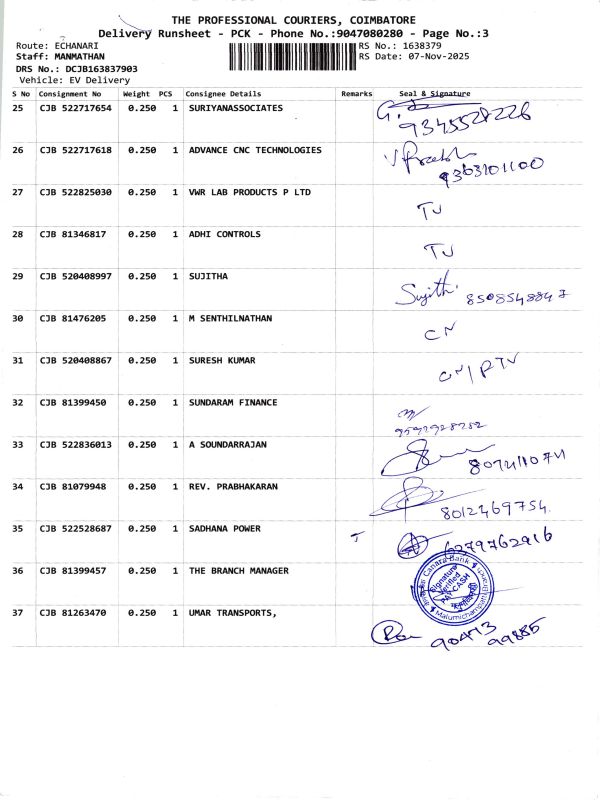 THE PROFESSIONAL COURIERS, COIMBATORE
Delivery Runsheet - PCK - Phone No.:9047080280 - Page No.:3
Route: ECHANARI
RS No.: 1638379
Staff: MANMATHAN
RS Date: 07-Nov-2025
DRS No.: DCJB163837903
Vehicle: EV Delivery
S No Consignment No Weight PCS Consignee Details Remarks Seal & Signature
25 CJB 522717654 0.250 1 SURIYANASSOCIATES
9345528226
26 CJB 522717618 0.250 1 ADVANCE CNC TECHNOLOGIES
9363101100
27 CJB 522825030 0.250 1 VWR LAB PRODUCTS P LTD
TJ
28 CJB 81346817 0.250 1 ADHI CONTROLS
TJ
29 CJB 520408997 0.250 1 SUJITHA Sujith.
8508548847
30 CJB 81476205 0.250 1 M SENTHILNATHAN
CN
31 CJB 520408867 0.250 1 SURESH KUMAR
CN/RTN
32 CJB 81399450 0.250 1 SUNDARAM FINANCE
33 CJB 522836013 0.250 1 A SOUNDARRAJAN
34 CJB 81079948 0.250 1 REV. PRABHAKARAN
8012469754
35 CJB 522528687 0.250 1 SADHANA POWER
T 6379762916
36 CJB 81399457 0.250 1 THE BRANCH MANAGER
Canara Bank
Signature
Verified
PAY CASH
Malumichampatti
37 CJB 81263470 0.250 1 UMAR TRANSPORTS,
90473
99885